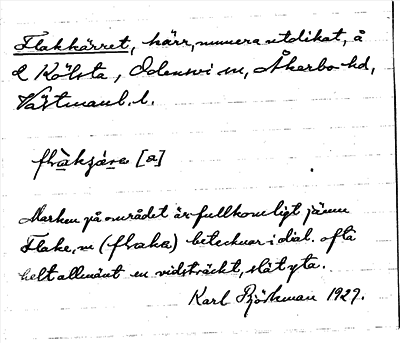 Flakkärret, kärr, numera utdikat, å
Kölsta, Odensvi sn, Åkerbo hd,
Västmanl. l.
[a]
Marken på området är fullkomligt jämn
Flake, m (flaka) betecknar i dial. ofta
helt allmänt en vidsträckt, slät yta.
Karl Björkman 1927.